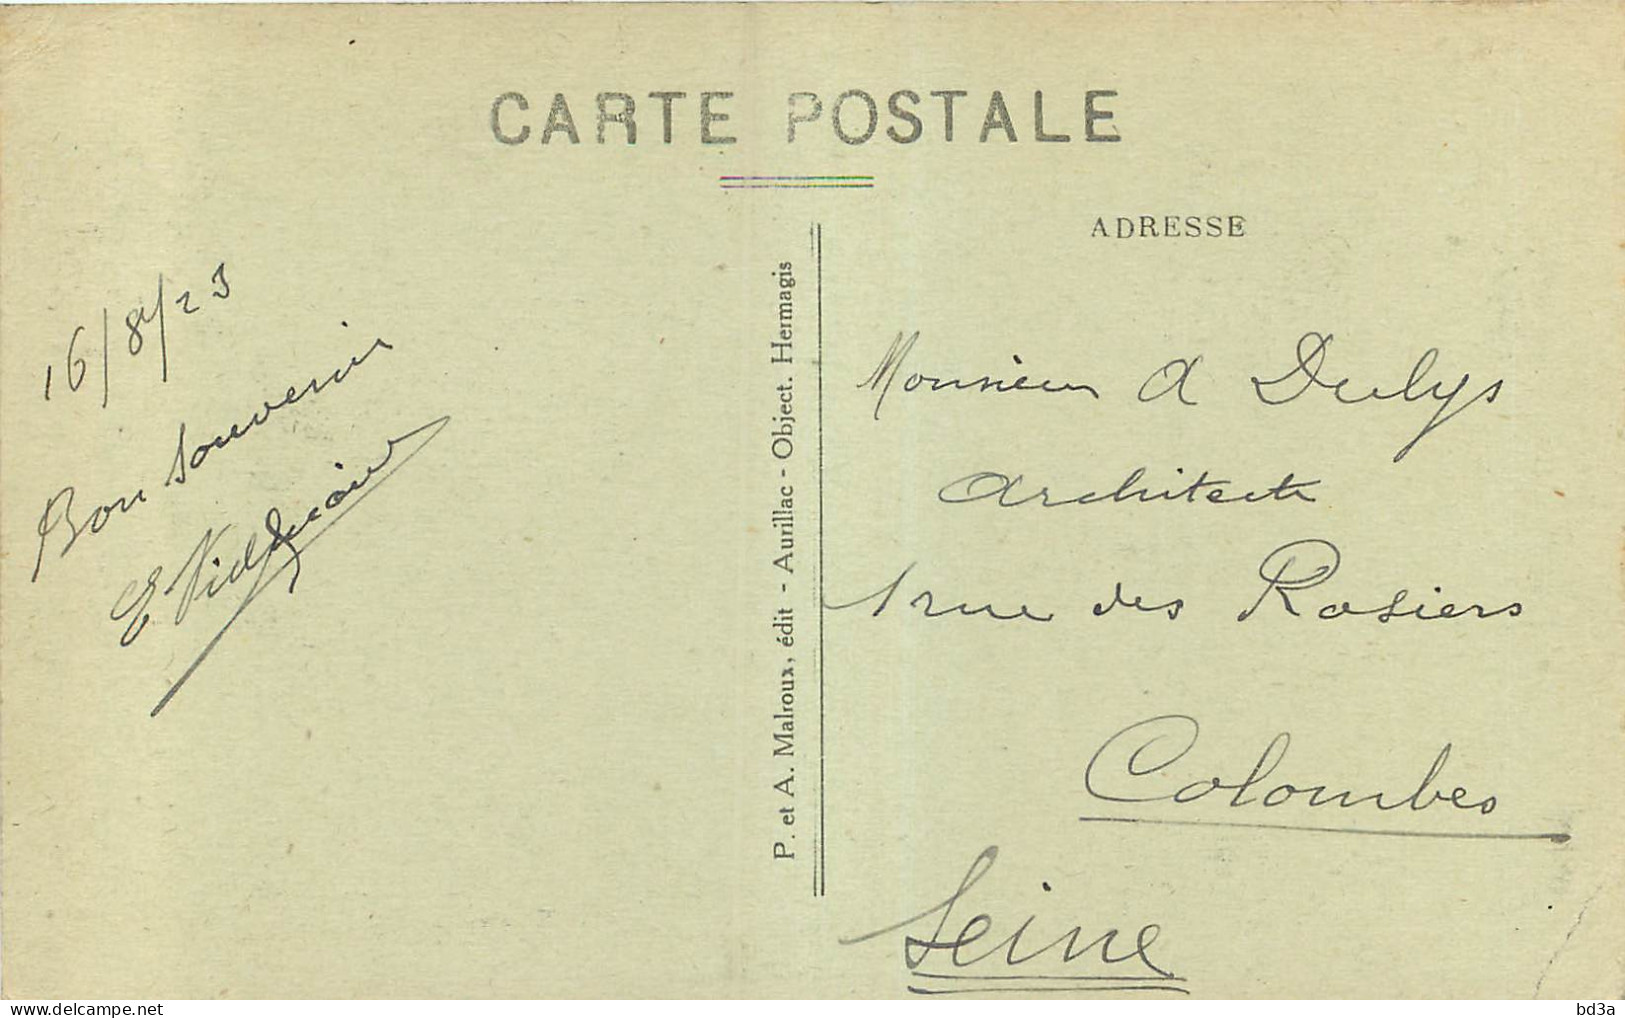 CARTE POSTALE
ADRESSE
16/8/23
Bon souvenir
E
P. et A. Malroux, édit - Aurillac - Object. Hermagis
Monsieur A Dulys
Architecte
1 rue des Rosiers
Colombes
Seine
bd3a